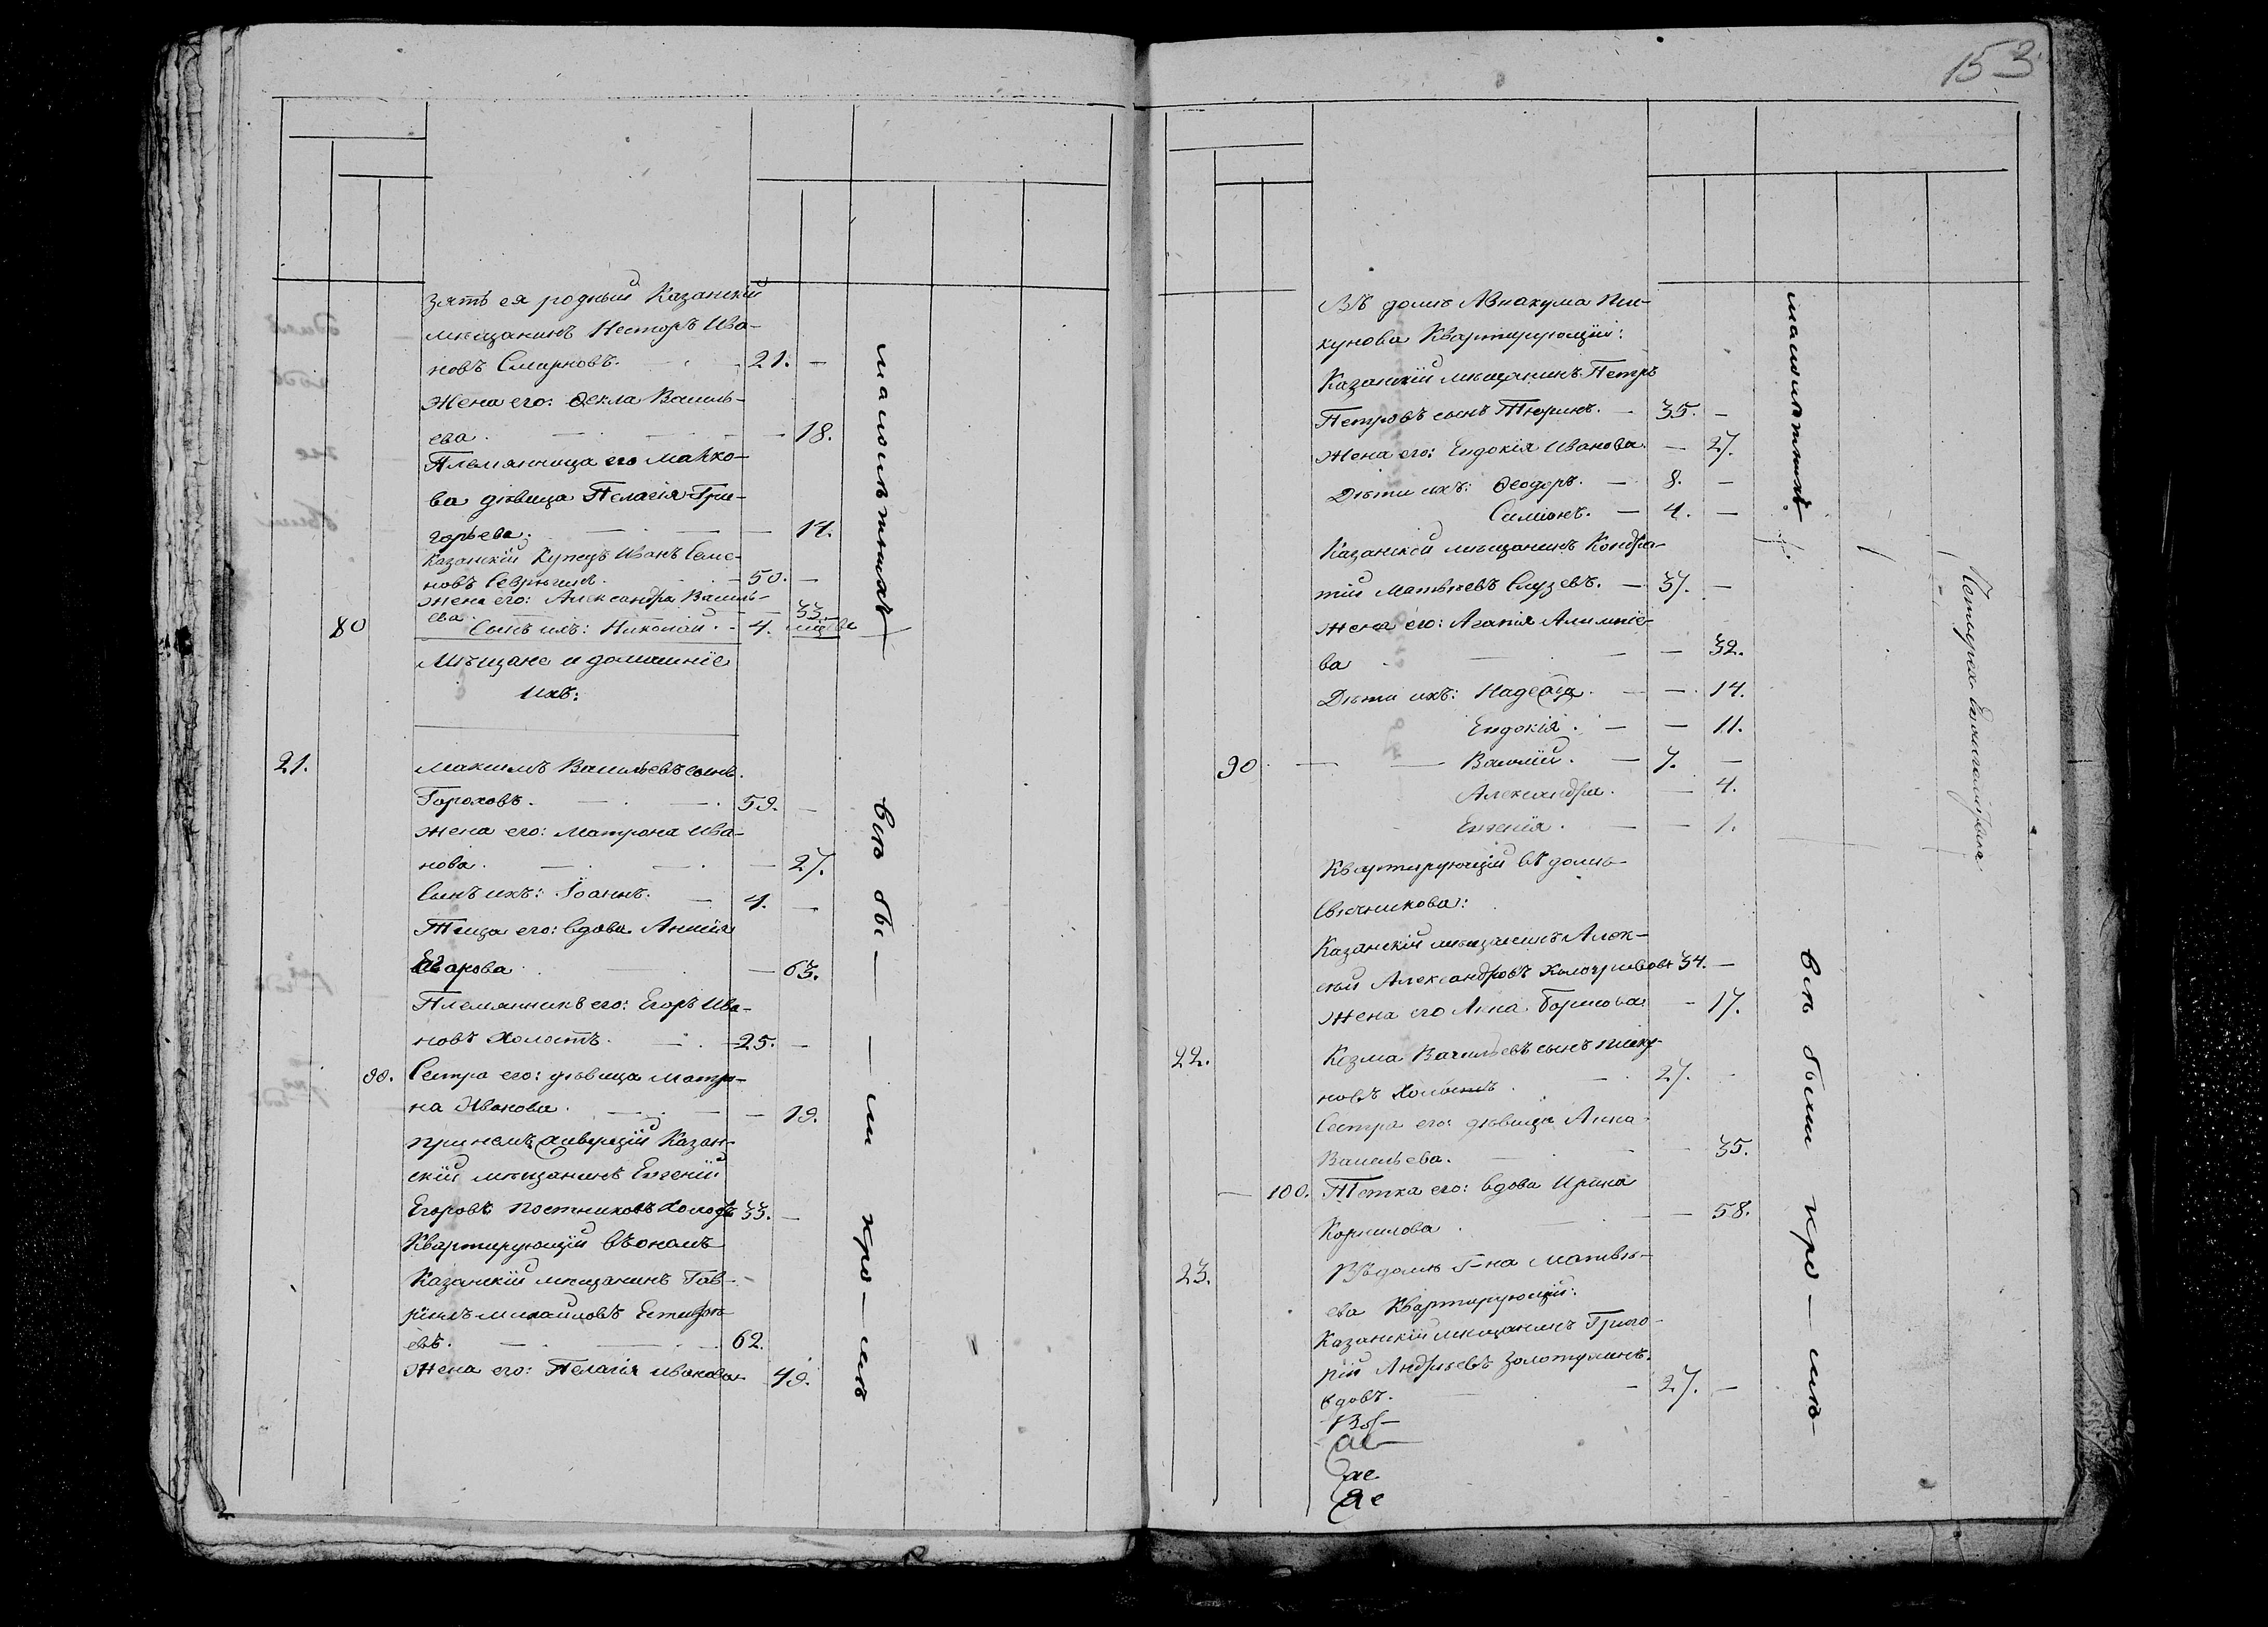 153.
зять ея родный Казанскій
мѣщанинъ Несторъ Ива-
новъ Смирновъ. 21. —
Жена его: Ѳекла Василь-
ева. — 18.
Племянница его
ва дѣвица Пелагія Гри-
горьева. — 14.
Казанскій Купецъ Иванъ Семе-
новъ 50. —
Жена его: Александра Василь-
ева 33.
80 Сынъ ихъ: Николай. 4.
Мѣщане и домашніе
ихъ:
21. Максимъ Васильевъ сынъ
Гороховъ. 59. —
Жена его: Матрона Ива-
нова. — 27.
Сынъ ихъ: Іоаннъ. — 4. —
Теща его: вдова
— 63.
Племянникъ его: Егоръ Ива-
новъ Холостъ. 25. —
90. Сестра его: дѣвица Матро-
на Иванова. — 19.
при немъ Казан-
скій мѣщанинъ Евгеній
Егоровъ Постниковъ 33. —
Квартирующій въ ономъ
Казанскій мѣщанинъ Гав-
ріилъ Михаиловъ
евъ. 62.
Жена его: Пелагія Иванова 49.
малолѣтнихъ
всѣ бы — — ли кро — мѣ
Въ домѣ Аввакума Пи-
кунова Квартирующіи:
Казанскій мѣщанинъ Петръ
Петровъ сынъ Тюринъ. — 35. —
Жена его: Евдокія Иванова. — 27.
Дѣти ихъ: Ѳеодоръ. — 8. —
Симіонъ. — 4. —
Казанскій мѣщанинъ Кондра-
тій Матвѣевъ — 37. —
Жена его: Агапія
ва — 32.
Дѣти ихъ: Надежда. — 14.
Евдокія. — — 11.
90 — — Василій. — 7. —
Александра. — 4.
Евгенія. — — 1.
Квартирующій въ домѣ
Свѣчникова:
Казанскій мѣщанинъ Алек-
сѣй Александровъ 34. —
Жена его Анна Борисова — 17.
22. Козма Васильевъ сынъ Пику-
новъ Холостъ. — 27. —
Сестра его: дѣвица Анна
Васильева. — 35.
— 100. Тетка его: вдова Ирина
Корнилова. — 58.
23. Въ домѣ Г-на Матвѣ-
ева Квартирующіи:
Казанскій мѣщанинъ Григо-
рій Андреевъ Золотухинъ.
вдовъ. — 27. —
малолѣтнихъ
всѣ были кро — мѣ